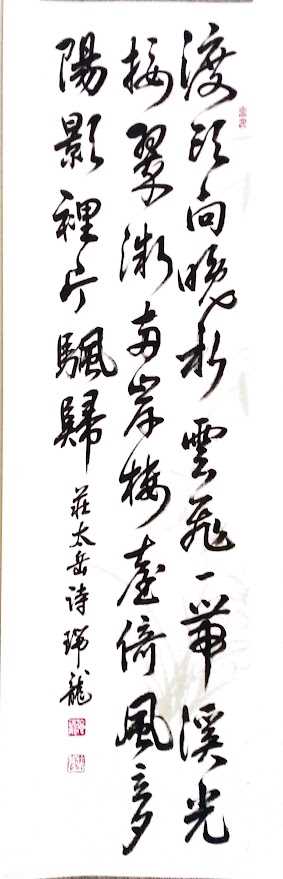 渡頭向晚彩雲飛一帶溪光
接翠微兩岸樓臺倚風立夕
陽影裡片颿歸
莊太岳詩 瑞龍